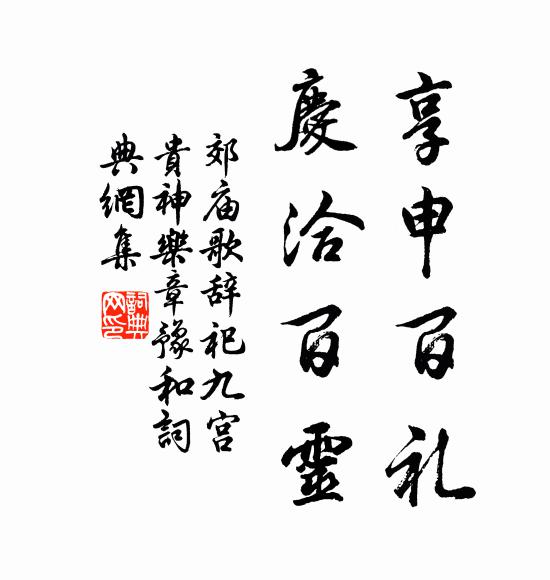 享申百礼
慶洽百靈
郊庙歌辞祀九宫
貴神樂章豫和詞
典網集
詞典网印